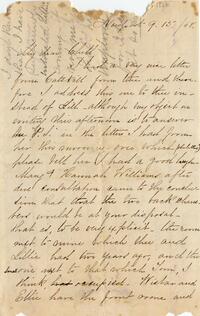 My dear Child
I had a very nice letter
from Catskill from thee and there
fore I address this one to thee in
stead of Lill. although my object in
writing this afternoon is to answer
the P.S. in the letter I had from
her this morning. over which please
please tell her I had a good laugh
Mary & Hannah Williams after
due consultation came to the conclu
sion that the two back cham
bers would be at your disposal.
that is, to be very explicit. the room
next to mine which thee and
Lillie had two years ago, and the
one next to that which Tom, I
think, occupied. Wistar and
Ellie have the front room and